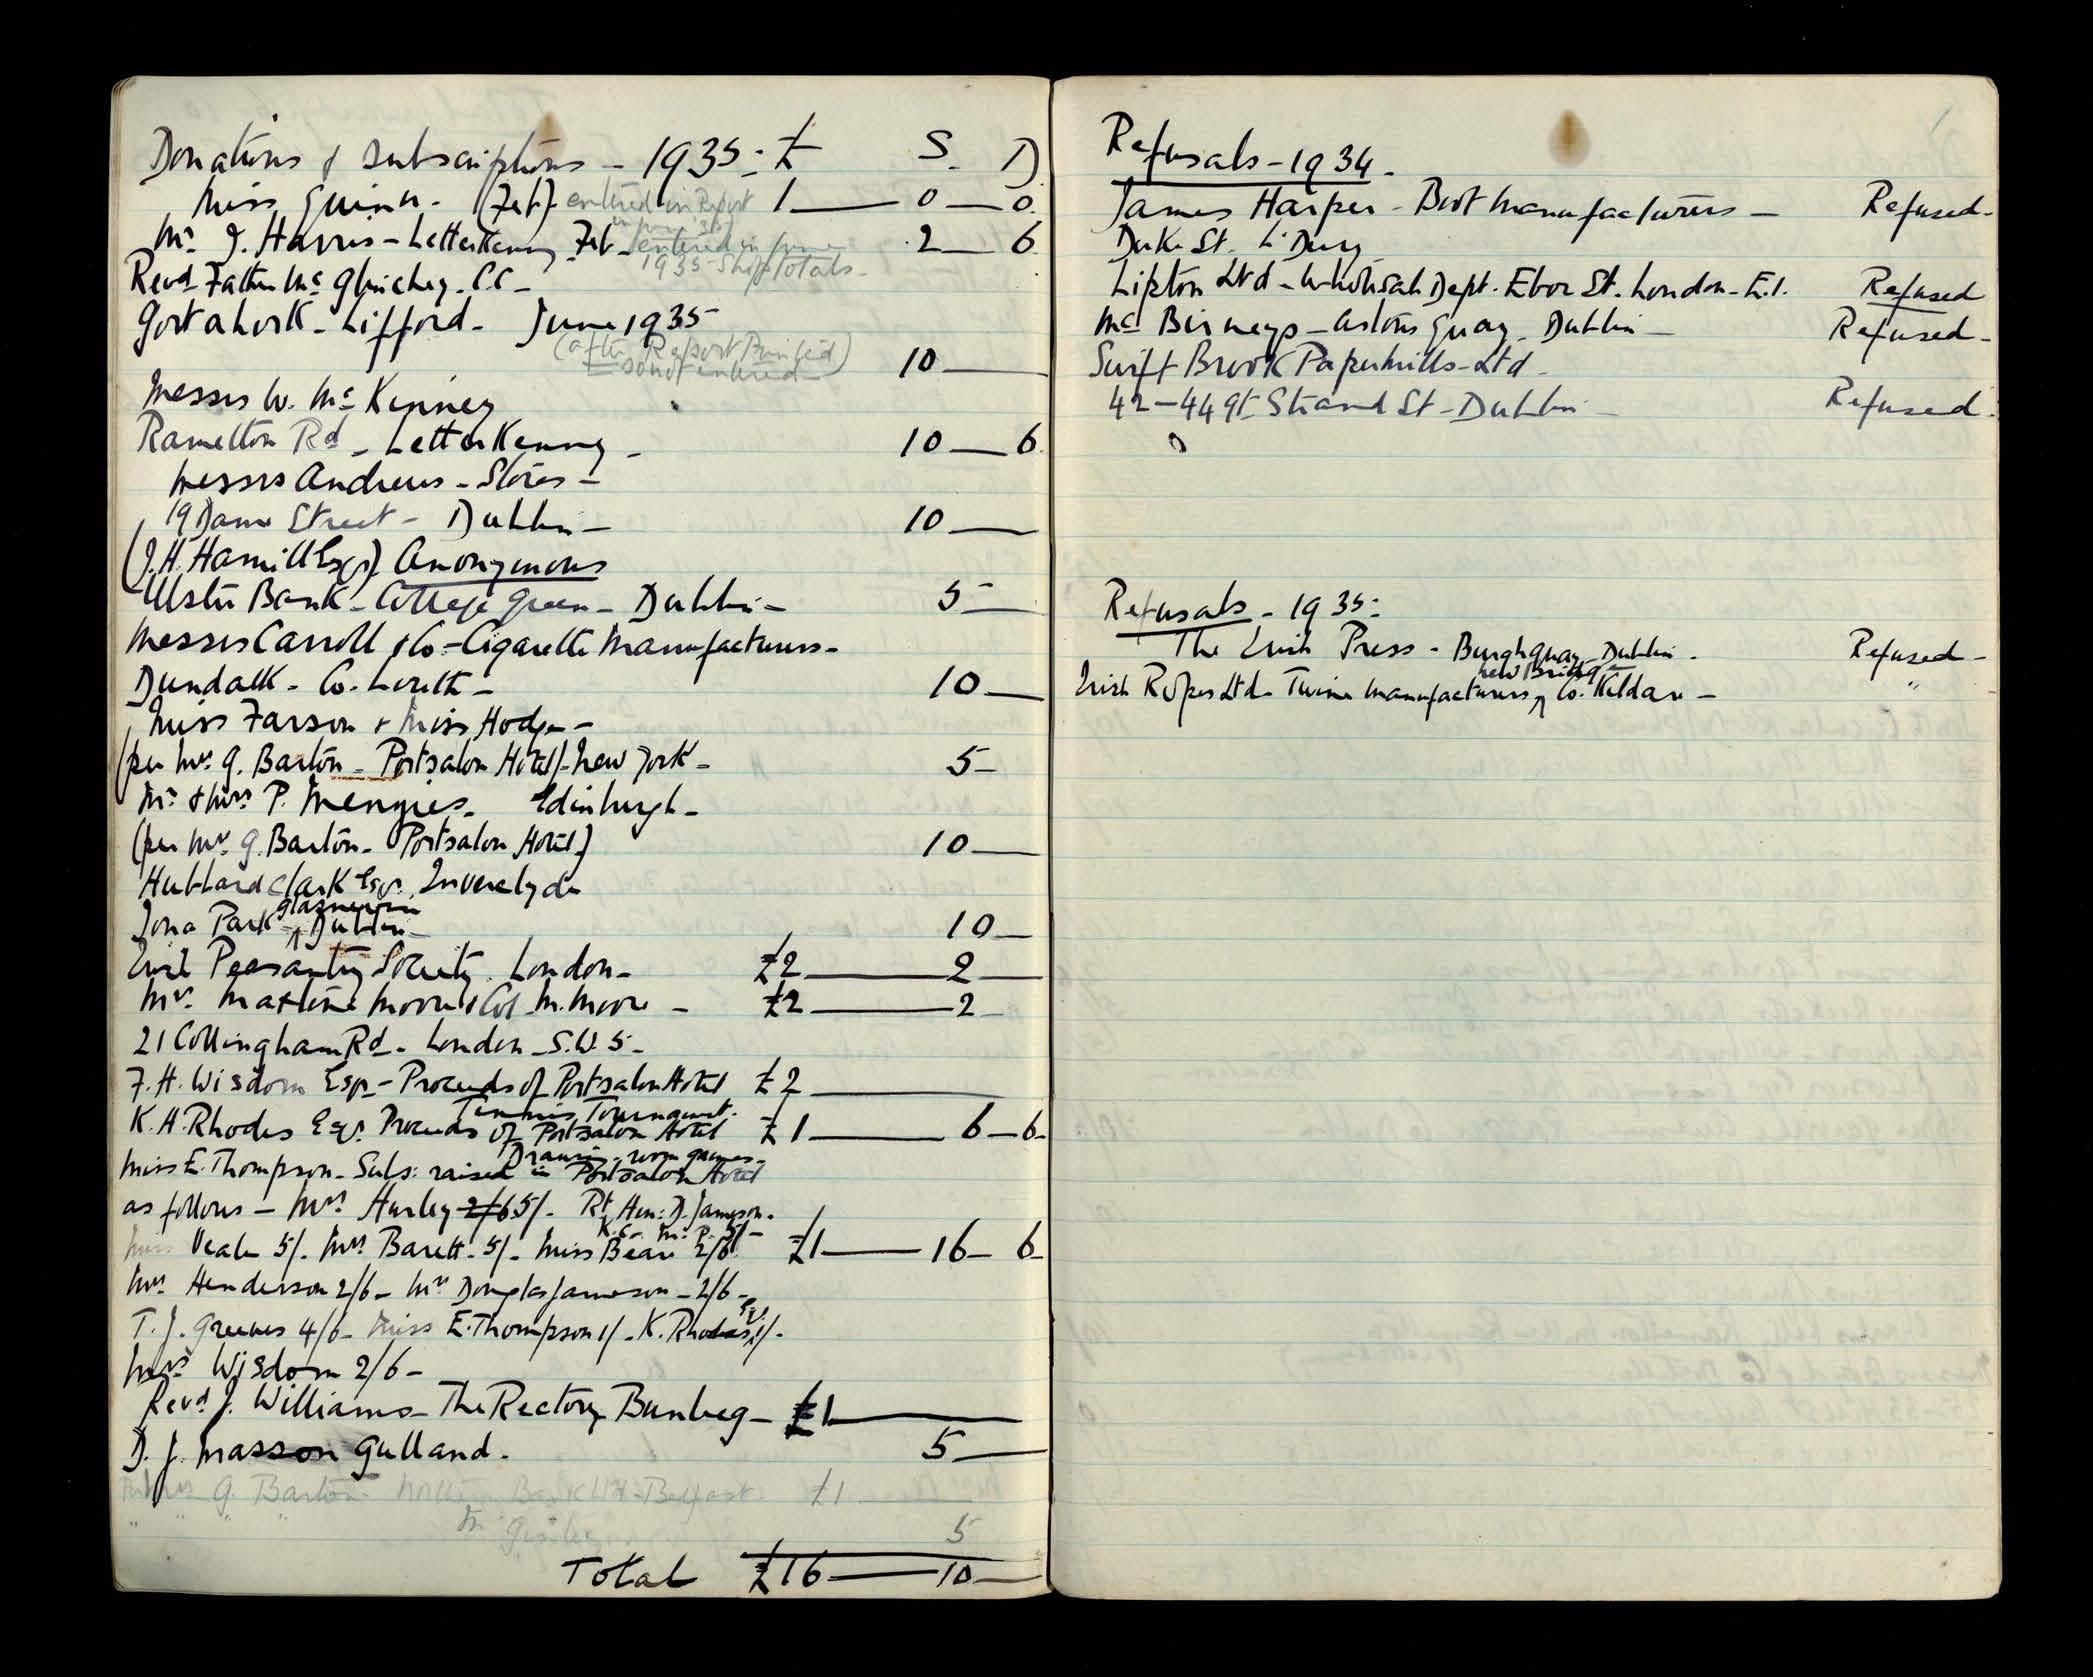 Donations & Subscriptions - 1935 - £ S. D.
Miss Quinn - (Feb) entered in Report 1 — 0 — 0.
Mr. J. Harris - Letterkenny Feb - entered in June 2 — 6
1935 - Totals -
Revd Father McGlinchey. C.C -
Gortahork - Lifford - June 1935
(after Report Printed) 10 —
so not entered
Messrs W. McKinney
Ramelton Rd - Letterkenny - 10 — 6.
Messrs Andrews - Stores -
19 Dame Street - Dublin - 10 —
(J. H. Hamill Esqr.) Anonymous
Ulster Bank - College Green - Dublin - 5 —
Messrs Carroll & Co - Cigarette Manufacturers -
Dundalk - Co. Louth - 10 —
Miss Farson & Miss Hodge -
(per Mrs. G. Barton - Portsalon Hotel) - New York - 5 -
Mr. & Mrs P. Menzies - Edinburgh -
(per Mrs. G. Barton - Portsalon Hotel) 10 —
Hubbard Clark Esqr. Inverclyde
Glasnevin
Iona Park - Dublin - 10 —
Irish Peasantry Society. London - £2 — 2 —
Mrs. Moore & Col M. Moore - £2 — 2 -
21 Collingham Rd - London - S.W. 5 -
F. H. Wisdom Esqr - Proceeds of Portsalon Hotel £2 —
Tennis Tournament.
K. H. Rhodes Esqr. Proceeds of Portsalon Hotel £1 — 6 — 6 -
Drawing-room games -
Miss E. Thompson - Subs: raised in Portsalon Hotel
as follows - Mrs Hurley 2/6 5/- Rt. Hon: D. Jameson -
K.C. - M.P. 5/-
Miss Veale 5/- Mrs Barett - 5/- Miss Bear 2/6 £1 — 16 — 6 -
Mrs. Henderson 2/6 - Mrs Douglas Jameson - 2/6 -
Esqr
T. J. Greeves 4/6 - Miss E. Thompson 1/- K. Rhodes 1/-
Mrs Wisdom 2/6 -
Revd J. Williams - The Rectory Bunbeg - £1 —
D. J. Masson Gulland. 5 —
G. Barton Northern Bank Ltd - Belfast. £1 —
" " " " 5
Total £16 — 10 —
Refusals - 1934 -
James Harper - Boot Manufacturers - Refused -
Duke St. L'Derry
Lipton Ltd - Wholesale Dept. Ebor St. London - E.1. Refused
McBirneys - Astons Quay - Dublin - Refused -
Swift Brook Papermills - Ltd -
42-44 Gt Strand St - Dublin - Refused -
Refusals - 1935 -
The Irish Press - Burgh Quay - Dublin - Refused -
New Bridge
Irish Ropes Ltd - Twine Manufacturers, Co. Kildare - "